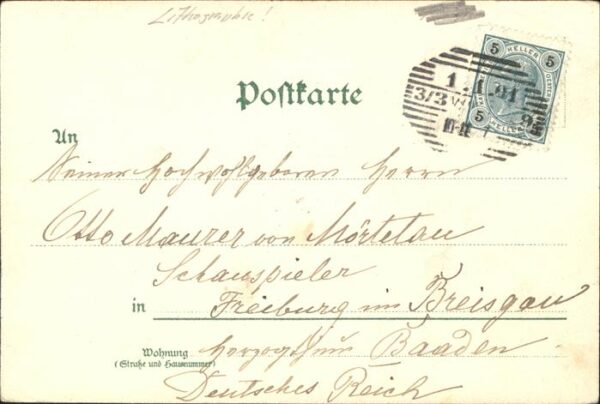 Lithographie!
Postkarte
5 HELLER 5
1.1.01
3/3 WIEN 95
10-11
5 HELLER
An
Seiner Hochwohlgeboren Herrn
Otto Maurer von Mörtelau
Schauspieler
in Freiburg im Breisgau
Wohnung
(Straße und Hausnummer)
Herzogthum Baaden
Deutsches Reich